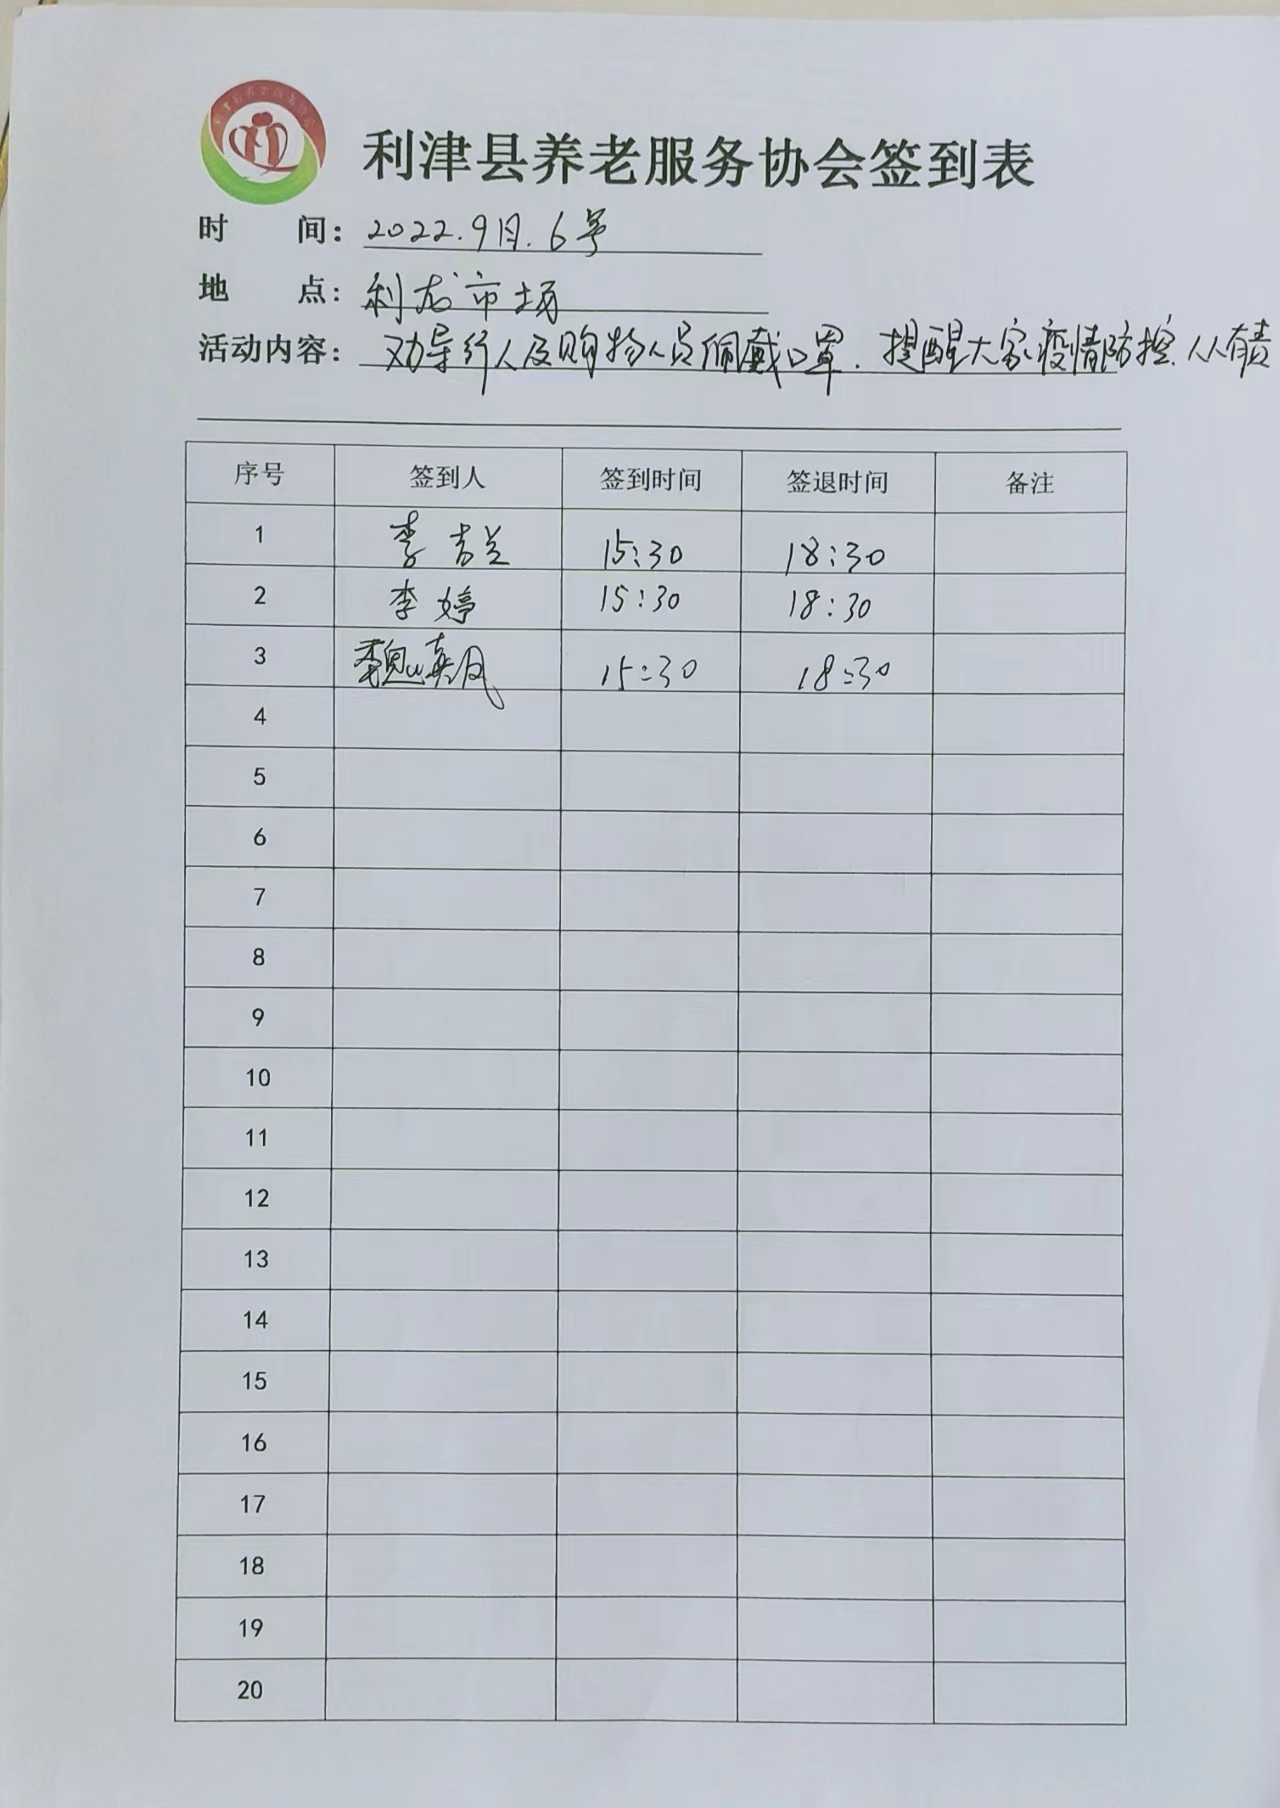 利津县养老服务协会签到表
时 间: 2022.9月.6号
地 点: 利龙市场
活动内容: 劝导行人及购物人员佩戴口罩.提醒大家疫情防控人人有责
序号 签到人 签到时间 签退时间 备注
1 李 15:30 18:30
2 李婷 15:30 18:30
3 魏英凤 15:30 18:30
4
5
6
7
8
9
10
11
12
13
14
15
16
17
18
19
20